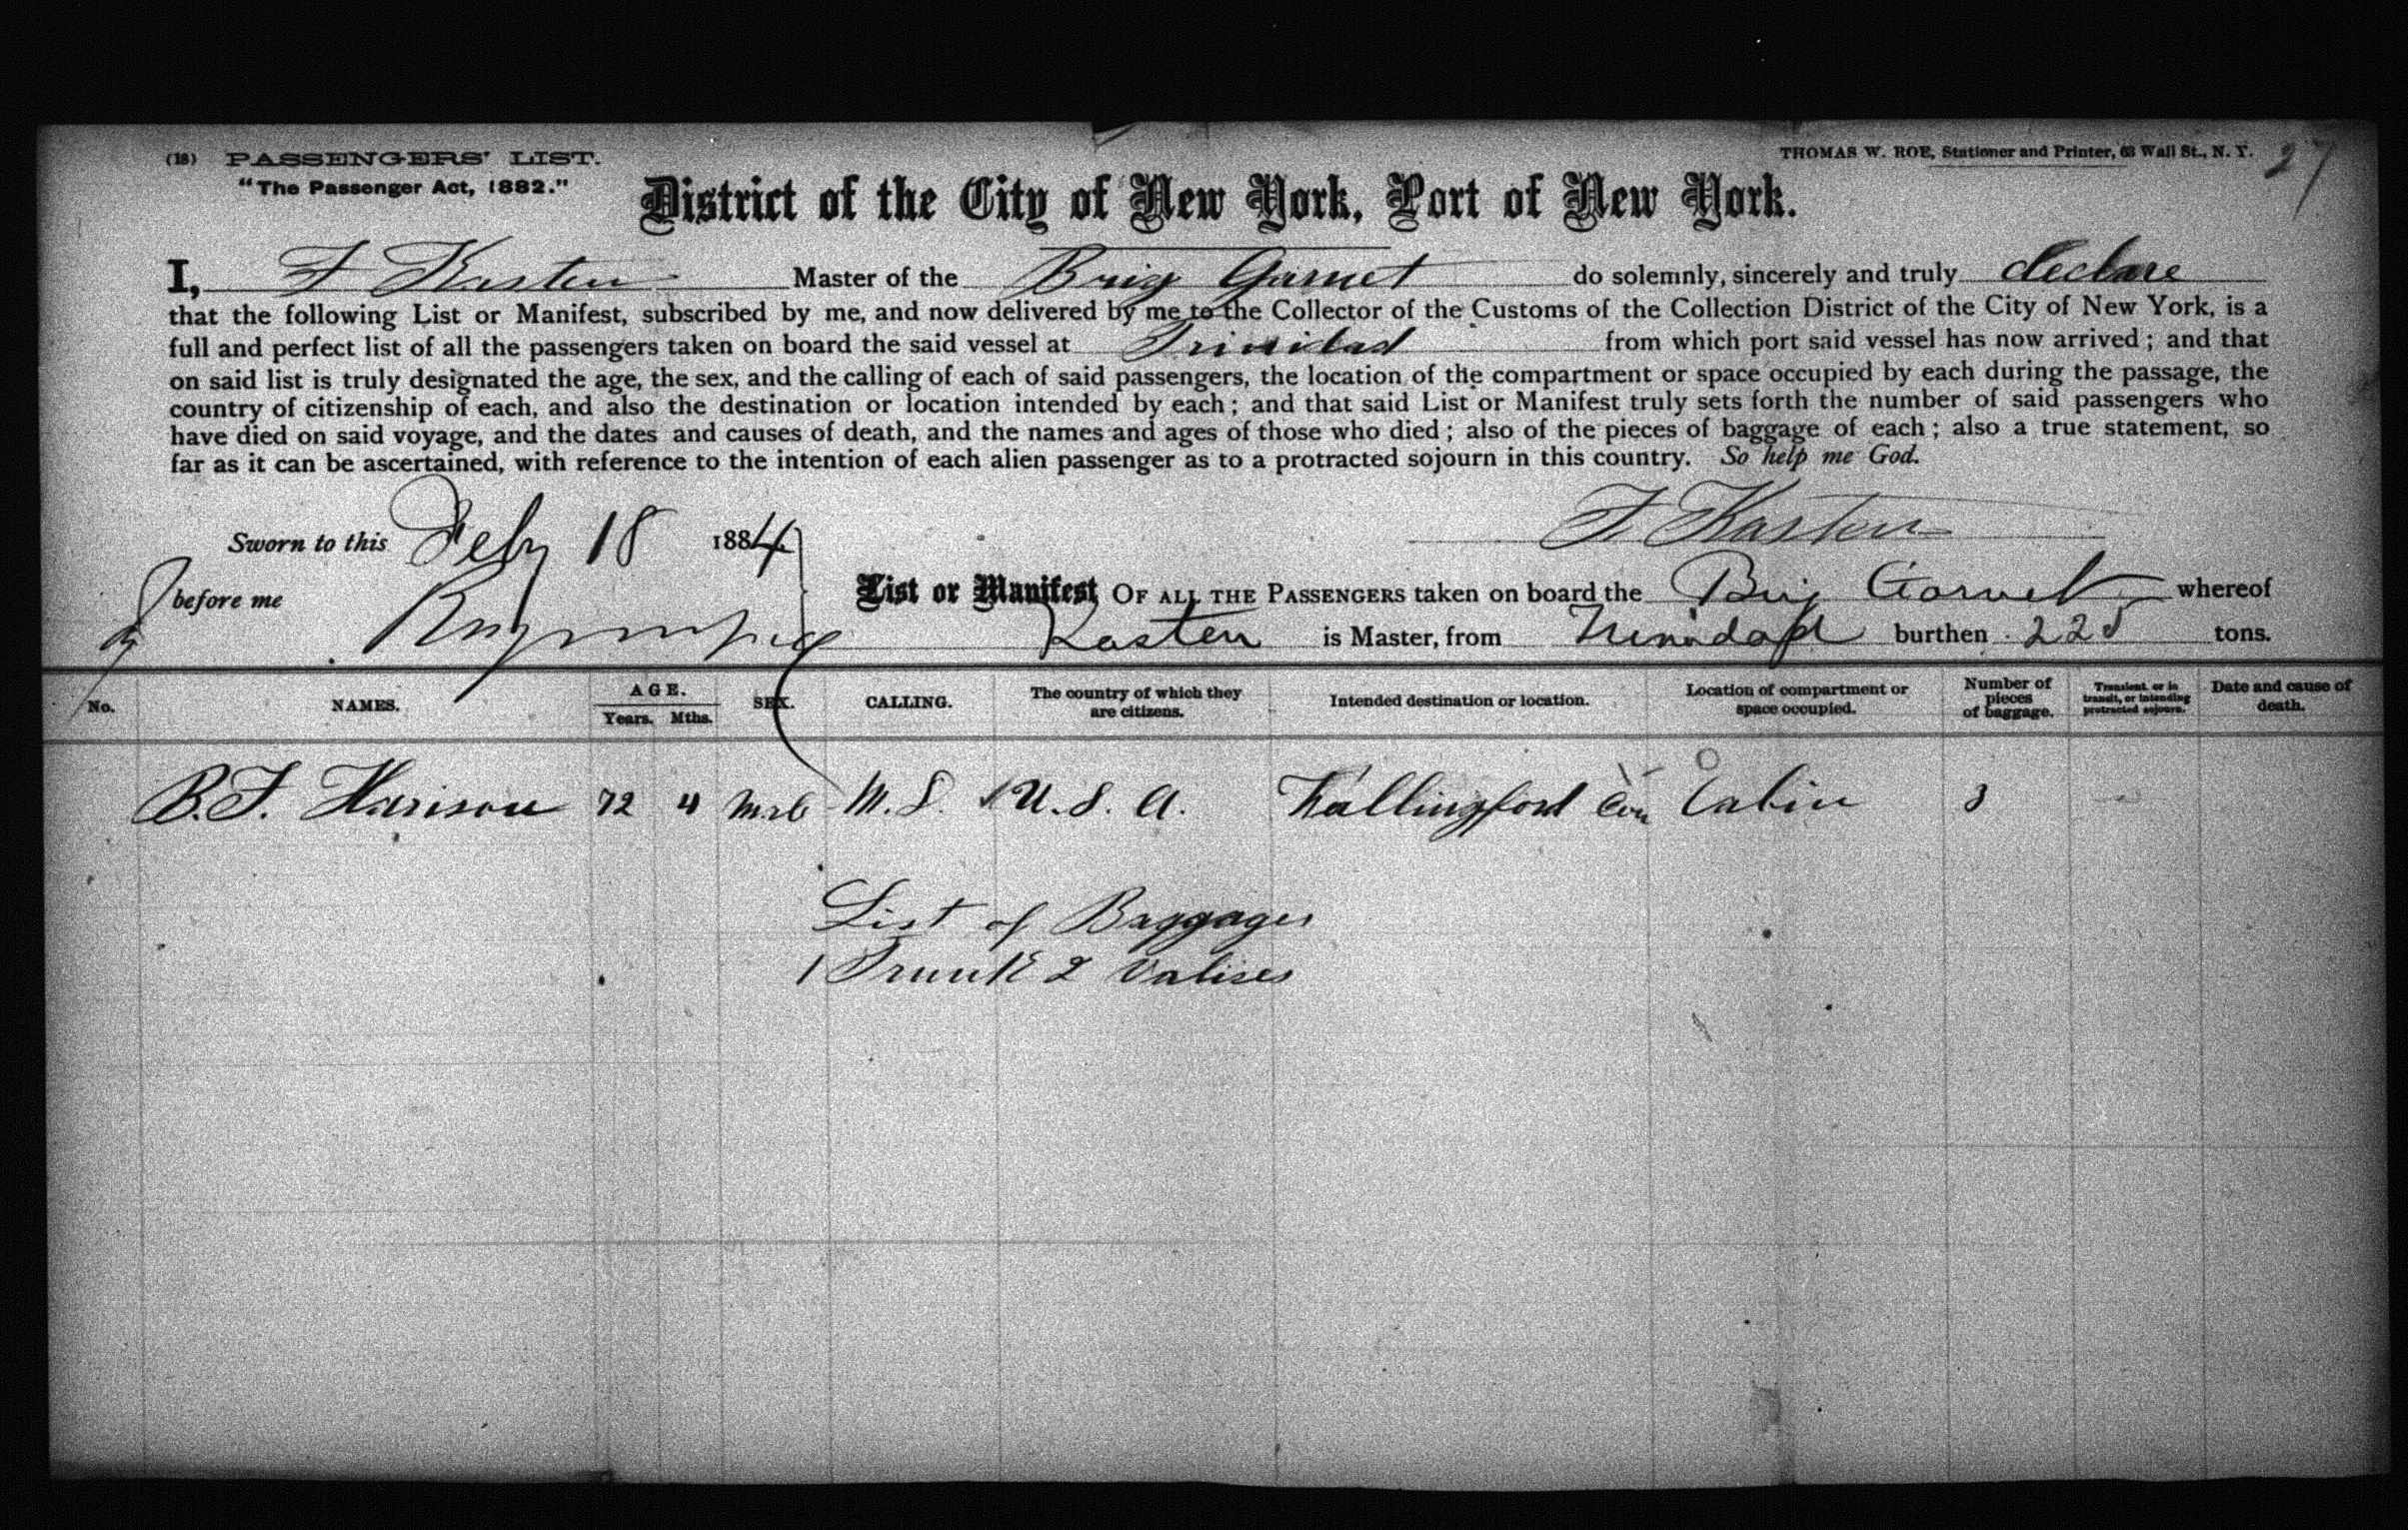 (18) PASSENGERS' LIST.
"The Passenger Act, 1882."
THOMAS W. ROE, Stationer and Printer, 63 Wall St., N. Y.
27
District of the City of New York, Port of New York.
I, F Kasten Master of the Brig Garnet do solemnly, sincerely and truly declare
that the following List or Manifest, subscribed by me, and now delivered by me to the Collector of the Customs of the Collection District of the City of New York, is a
full and perfect list of all the passengers taken on board the said vessel at Trinidad from which port said vessel has now arrived; and that
on said list is truly designated the age, the sex, and the calling of each of said passengers, the location of the compartment or space occupied by each during the passage, the
country of citizenship of each, and also the destination or location intended by each; and that said List or Manifest truly sets forth the number of said passengers who
have died on said voyage, and the dates and causes of death, and the names and ages of those who died; also of the pieces of baggage of each; also a true statement, so
far as it can be ascertained, with reference to the intention of each alien passenger as to a protracted sojourn in this country. So help me God.
F Kasten
Sworn to this Feby 18 1884
before me
List or Manifest OF ALL THE PASSENGERS taken on board the Brig Garnet whereof
Kasten is Master, from Trinidad burthen 225 tons.
No. NAMES. AGE. Years. Mths. SEX. CALLING. The country of which they are citizens. Intended destination or location. Location of compartment or space occupied. Number of pieces of baggage. Transient, or in transit, or intending protracted sojourn. Date and cause of death.
B. F. Harison 72 4 M. U. S. A. Wallingford Con Cabin 3
List of Baggages
1 Trunk 2 Valises